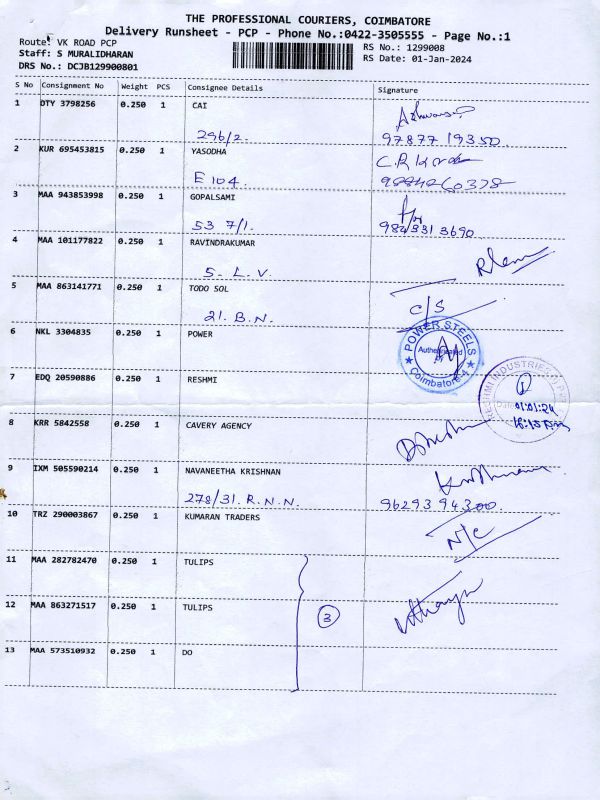 THE PROFESSIONAL COURIERS, COIMBATORE
Delivery Runsheet - PCP - Phone No.:0422-3505555 - Page No.:1
Route: VK ROAD PCP
RS No.: 1299008
Staff: S MURALIDHARAN
RS Date: 01-Jan-2024
DRS No.: DCJB129900801
S No Consignment No Weight PCS Consignee Details Signature
1 DTY 3798256 0.250 1 CAI
296/2. 97877 19350
2 KUR 695453815 0.250 1 YASODHA
E 104.
3 MAA 943853998 0.250 1 GOPALSAMI
53 7/1.
4 MAA 101177822 0.250 1 RAVINDRAKUMAR
5. L. V.
5 MAA 863141771 0.250 1 TODO SOL C/S
21. B.N.
6 NKL 3304835 0.250 1 POWER
POWER STEELS
Authenticated
Coimbatore-4
7 EDQ 20590886 0.250 1 RESHMI
RESHMI INDUSTRIES
01:01:24
8 KRR 5842558 0.250 1 CAVERY AGENCY
9 IXM 505590214 0.250 1 NAVANEETHA KRISHNAN
278/31. R.N.N. 96293 94300
10 TRZ 290003867 0.250 1 KUMARAN TRADERS N/C
11 MAA 282782470 0.250 1 TULIPS
12 MAA 863271517 0.250 1 TULIPS 3
13 MAA 573510932 0.250 1 DO